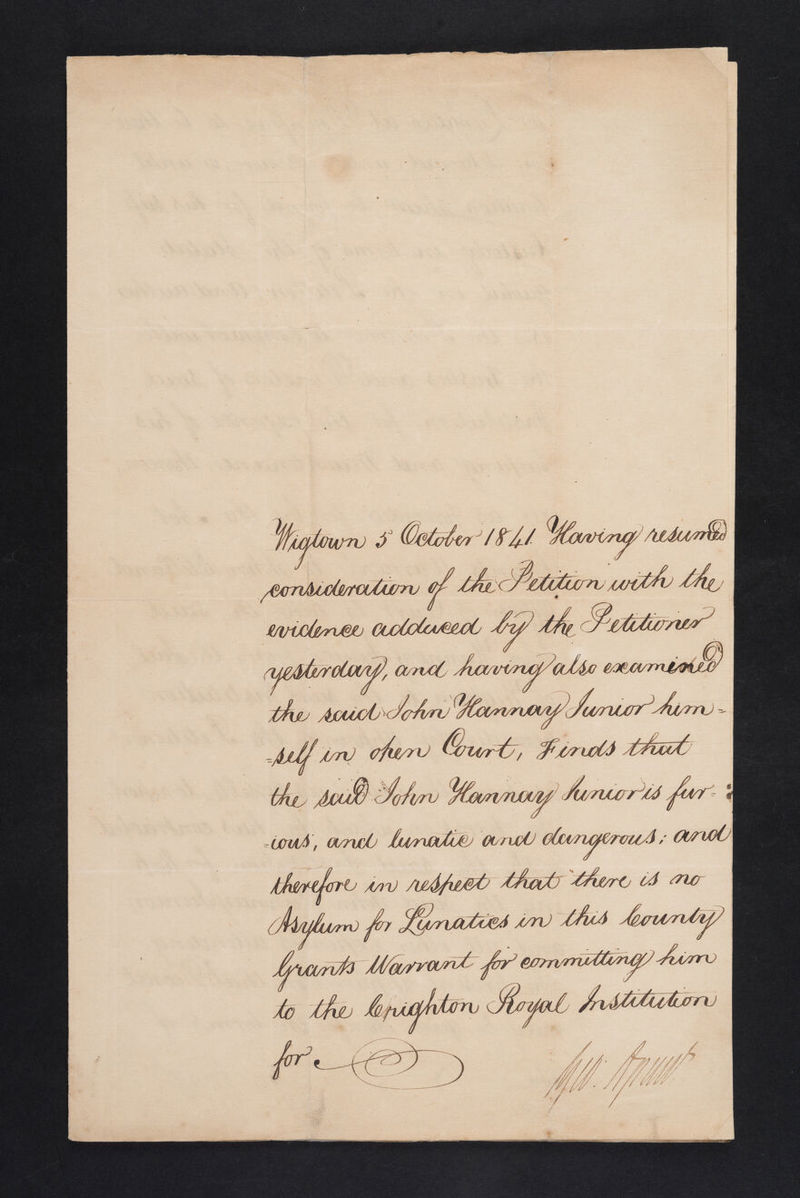 Wigtown 5 October 1841. Having resumed
consideration of the Petition with the
evidence adduced by the Petitioner
yesterday, and having also examined
the said John Hannay Junior him-
-self in open Court, Finds that
the said John Hannay Junior is fur-
-ious, and lunatic and dangerous; and
therefore in respect that there is no
Asylum for Lunatics in this County
Grants Warrant for committing him
to the Crighton Royal Institution
for
Geo: